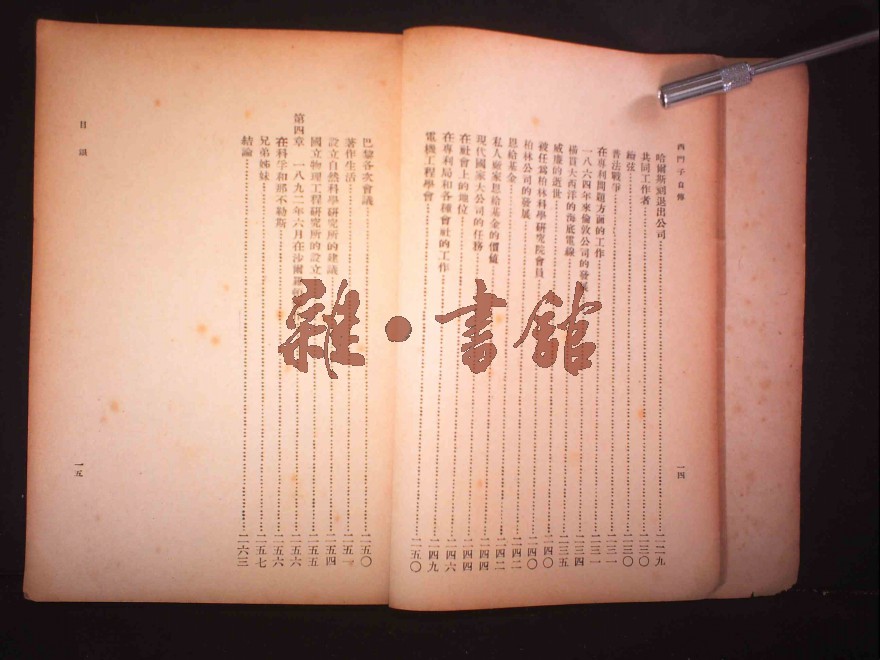 西門子自傳
哈爾斯刻退出公司……二二九
共同工作者……二三〇
續弦……二三〇
普法戰爭……二三一
在專利問題方面的工作……二三一
一八六四年來倫敦公司的發展……二三四
橫貫大西洋的海底電線……二三五
威廉的逝世……二四〇
被任爲柏林科學研究院會員……二四〇
柏林公司的發展……二四二
恩給基金……二四二
私人廠家恩給基金的價值……二四四
現代國家大公司的任務……二四四
在社會上的地位……二四六
在專利局和各種會社的工作……二四九
電機工程學會……二五〇
一四
巴黎各次會議……二五〇
著作生活……二五一
設立自然科學研究所的建議……二五四
國立物理工程研究所的設立……二五五
第四章 一八九二年六月在沙爾……二五六
在科孚和那不勒斯……二五六
兄弟姊妹……二五七
結論……二六三
目錄
一五
雜・書館